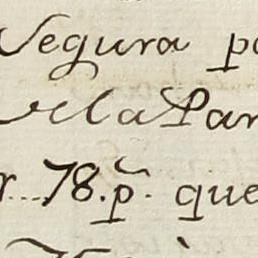 Segura po
de la Par
r...78.p̃. que